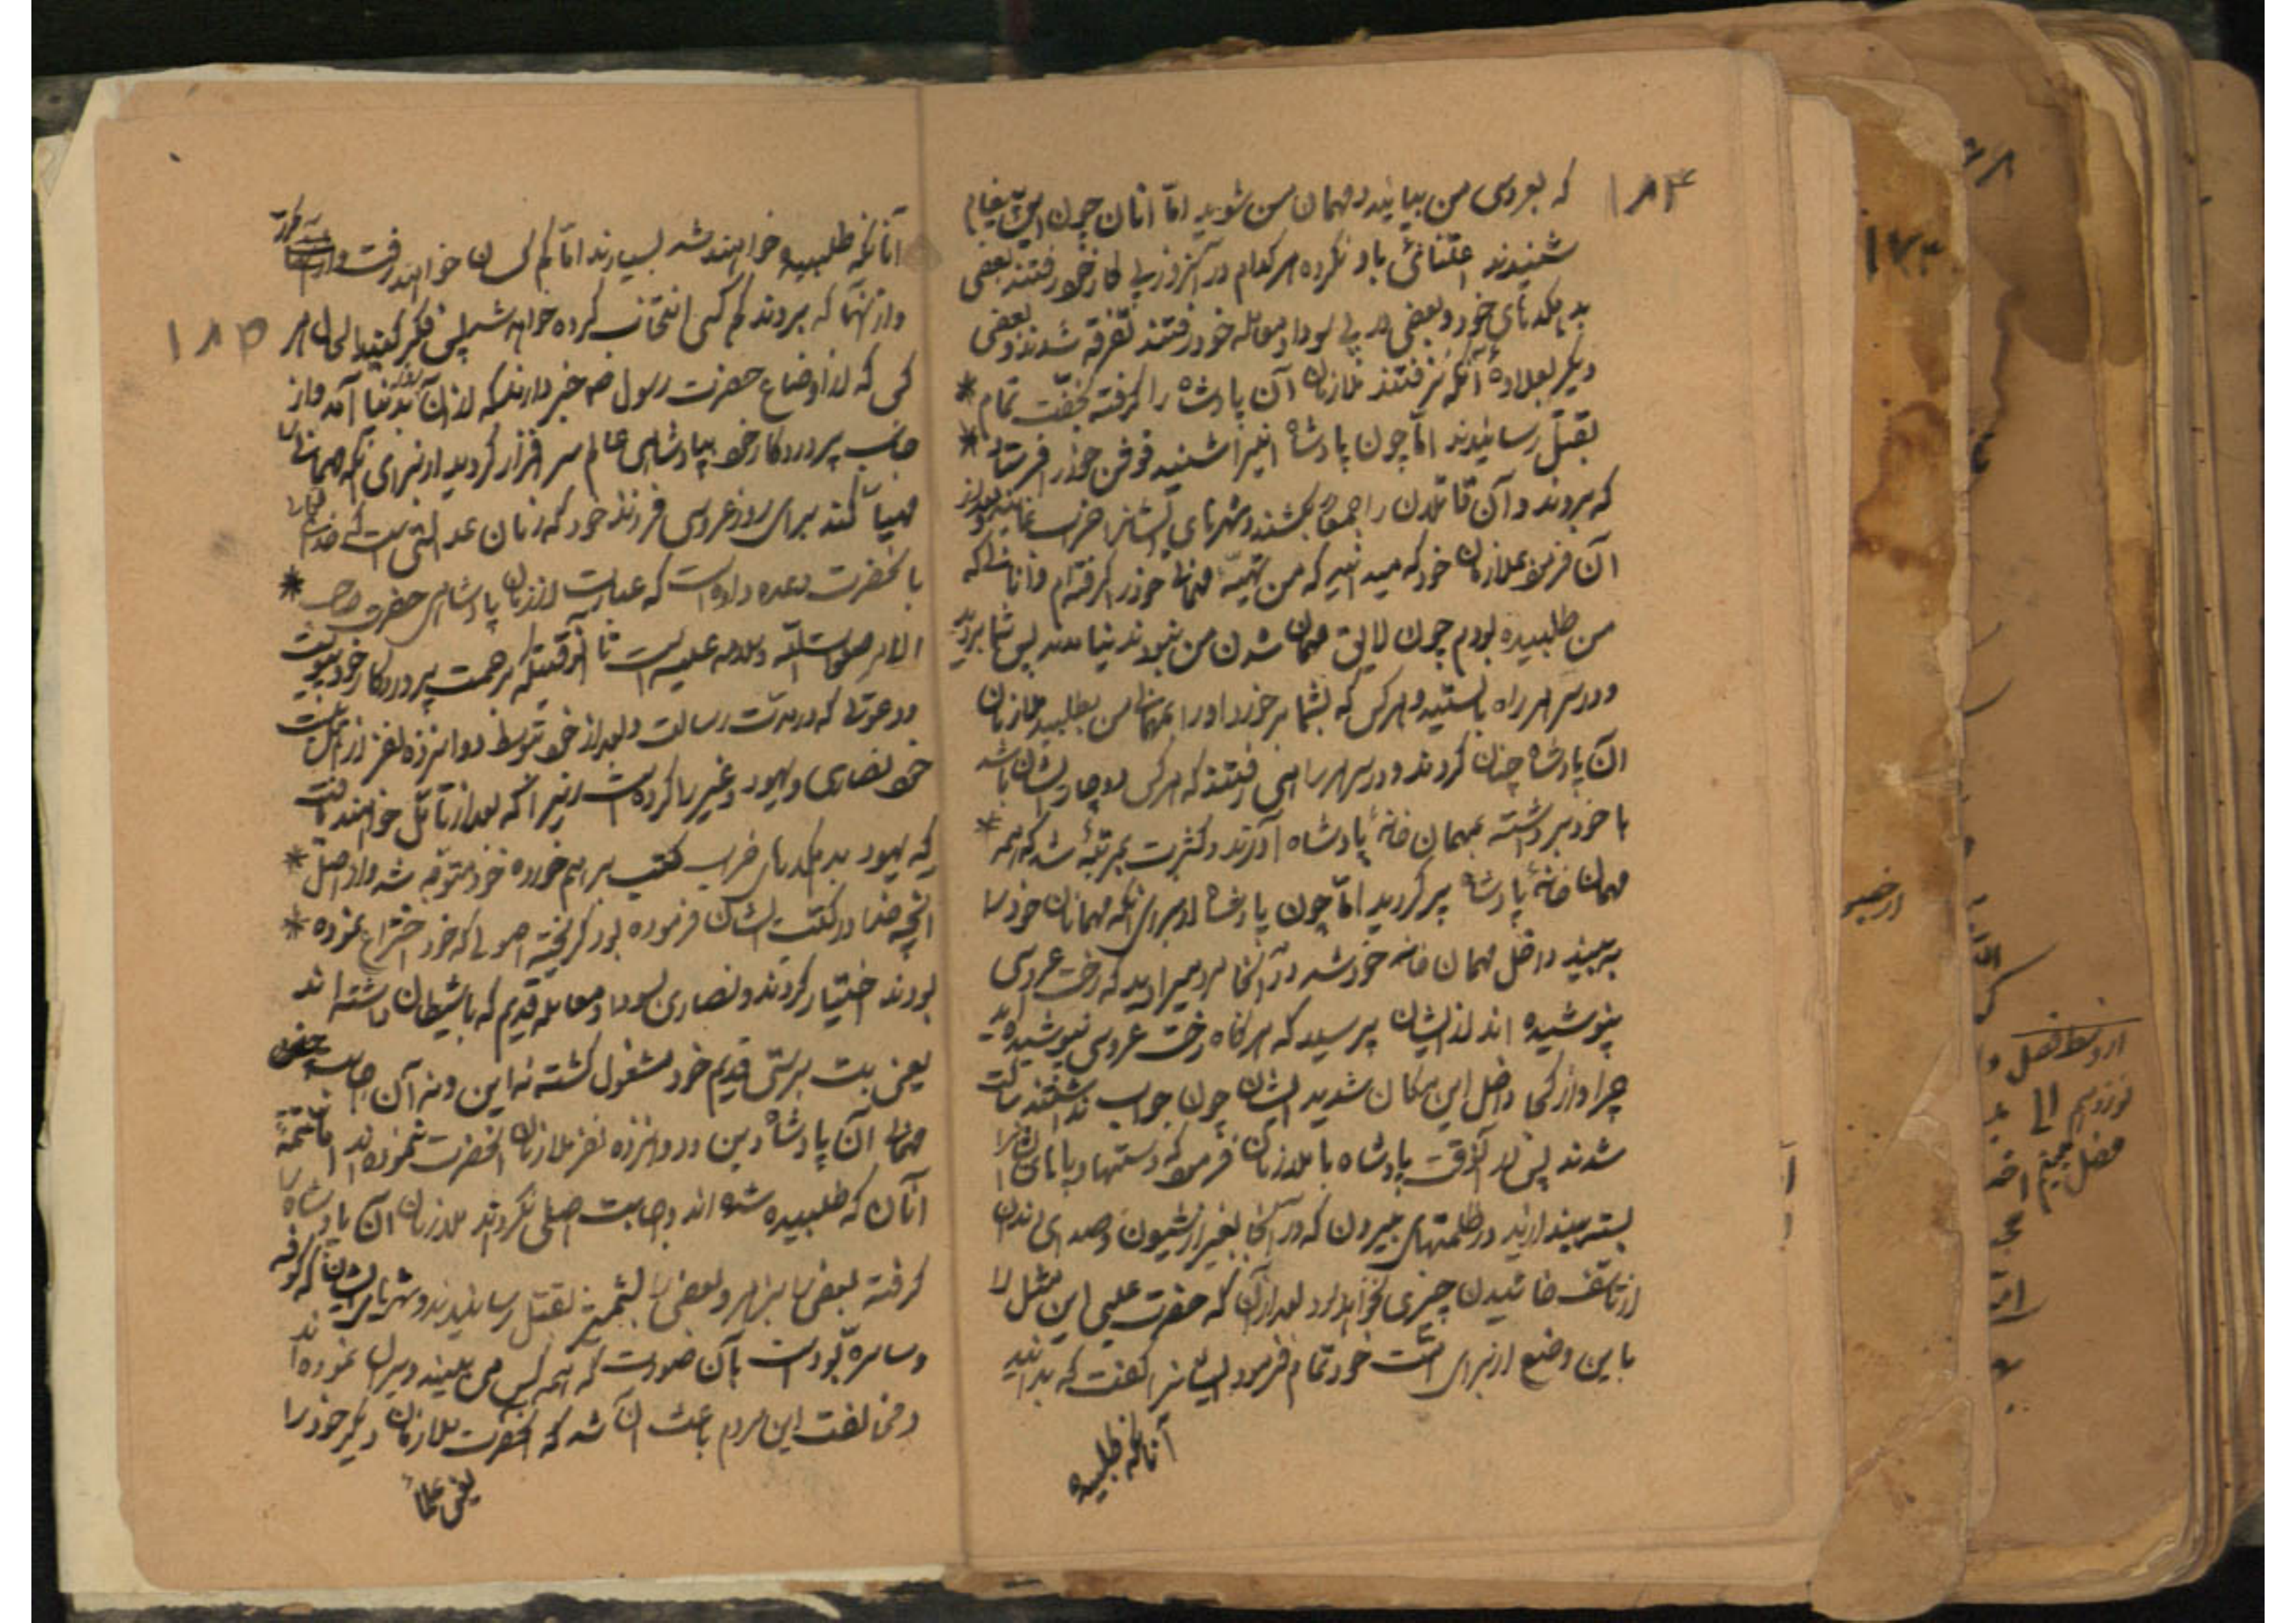 ۱۸۴
که بعروسی من بیایند و مهمان من شوید امّا آنان چون این پیغام
شنیدند اعتنائی باو نکرده هر کدام در آنروز پی کار خود رفتند بعضی
بدیلکدهای خود و بعضی در پی سودا و معامله خود رفتند تفرقه شدند و بعضی
دیگر بعلاوهٔ آنکه نرفتند ملازمان آن پادشاه را گرفته بخفّت تمام *
بقتل رسانیدند امّا چون پادشاه اینرا شنید قوشن خود را فرستاد *
که بروند و آن قاتلان را جمعاً بکشند و شهرهای ایشانرا خراب نمایند بعد از
آن فرمود بملازمان خود که میدانید که من تهیّهٔ مهمانی خود را گرفته‌ام و آنانی که
من طلبیده بودم چون لایق مهمان شدن من نبودند نیامدند پس شما بروید
و در سر هر راه بایستید و هر کس که بشما برخورد او را بمهمانی من بطلبید ملازمان
آن پادشاه چنان کردند و در سر هر راهی رفتند که هر کس دوچار ایشان باشد
با خود برداشته بمهمان خانهٔ پادشاه آوردند و کثرت بمرتبهٔ شد که همه *
مهمان خانهٔ پادشاه پر گردید امّا چون پادشاه از برای آنکه مهمانان خود را
به بیند داخل مهمان خانه خود شد در آنجا مردمی را دید که رخت عروسی
نپوشیده اند از ایشان پرسید که هر گاه رخت عروسی نپوشیده‌اید
چرا و از کجا داخل این مکان شدید ایشان چون جواب نداشتند ساکت
شدند پس در آنوقت پادشاه با ملازمان فرمود که دستها و پاهای ایشانرا
بسته بیندازید در ظلمتهای بیرون که در آنجا بغیر از شیون و صدای دندان
از تأسّف خائیدن چیزی نخواهد بود بعد از آن که حضرت عیسی این مثل را
باین وضع از برای امّت خود تمام فرمود ایشانرا گفت که بدانید
آنانکه طلبیده
آنانکه طلبیده خواهند شد بسیارند امّا کم کسان خواهند رفت و از
۱۸۵
و از آنها که بروند کم کس انتخاب کرده خواهد شد پس فکر کنید الحال هر
کس که از اوضاع حضرت رسول ص خبر دارند که از آن روز بدنیا آمد و از
جانب پروردگار خود بپادشاهی عالم سرافراز گردید از برای آنکه مهمانی را
مهیّا کند برای روز عروسی فرزند خود که زمان عدالتی است که خدای تعالی
با آنحضرت وعده داده است که عبارت از زمان پادشاهی حضرت صاحب *
الامر صلوات الله و سلامه علیه است تا آنوقتیکه برحمت پروردگار خود پیوست
و دعوتی که در مدّت رسالت و بعد از خود بتوسط دوازده نفر از اهلبیت
خود نصاری و یهود و غیر را کرده است زیرا که بعد از تأمّل خواهند یافت
که یهود بدیلکدهای خراب کتب برهم خورده خود متوجّه شد و از اصل *
آنچه خدا در کتب ایشان فرموده بود گریخته اصولی که خود اختراع نموده *
بودند اختیار کردند و نصاری بسودا و معامله قدیم که با شیطان داشته اند
یعنی بت پرستی قدیم خود مشغول گشته نه این و نه آن اجابت
مهمانی آن پادشاه دین و دوازده نفر ملازمان آنحضرت ننموده‌اند
آنان که طلبیده شده اند و اجابت اصلی نکردند ملازمان آن پادشاه را
گرفته بعضی را بزهر و بعضی را بشمشیر بقتل رسانیدند و شهرهای ایشان که کوفه
و سامرّه بوده است بآن صورت که همه کس می بینند ویران نموده‌اند
و مخالفت این مردم باعث آن شد که آنحضرت ملازمان دیگر خود را
یعنی علماء
۱۷۴